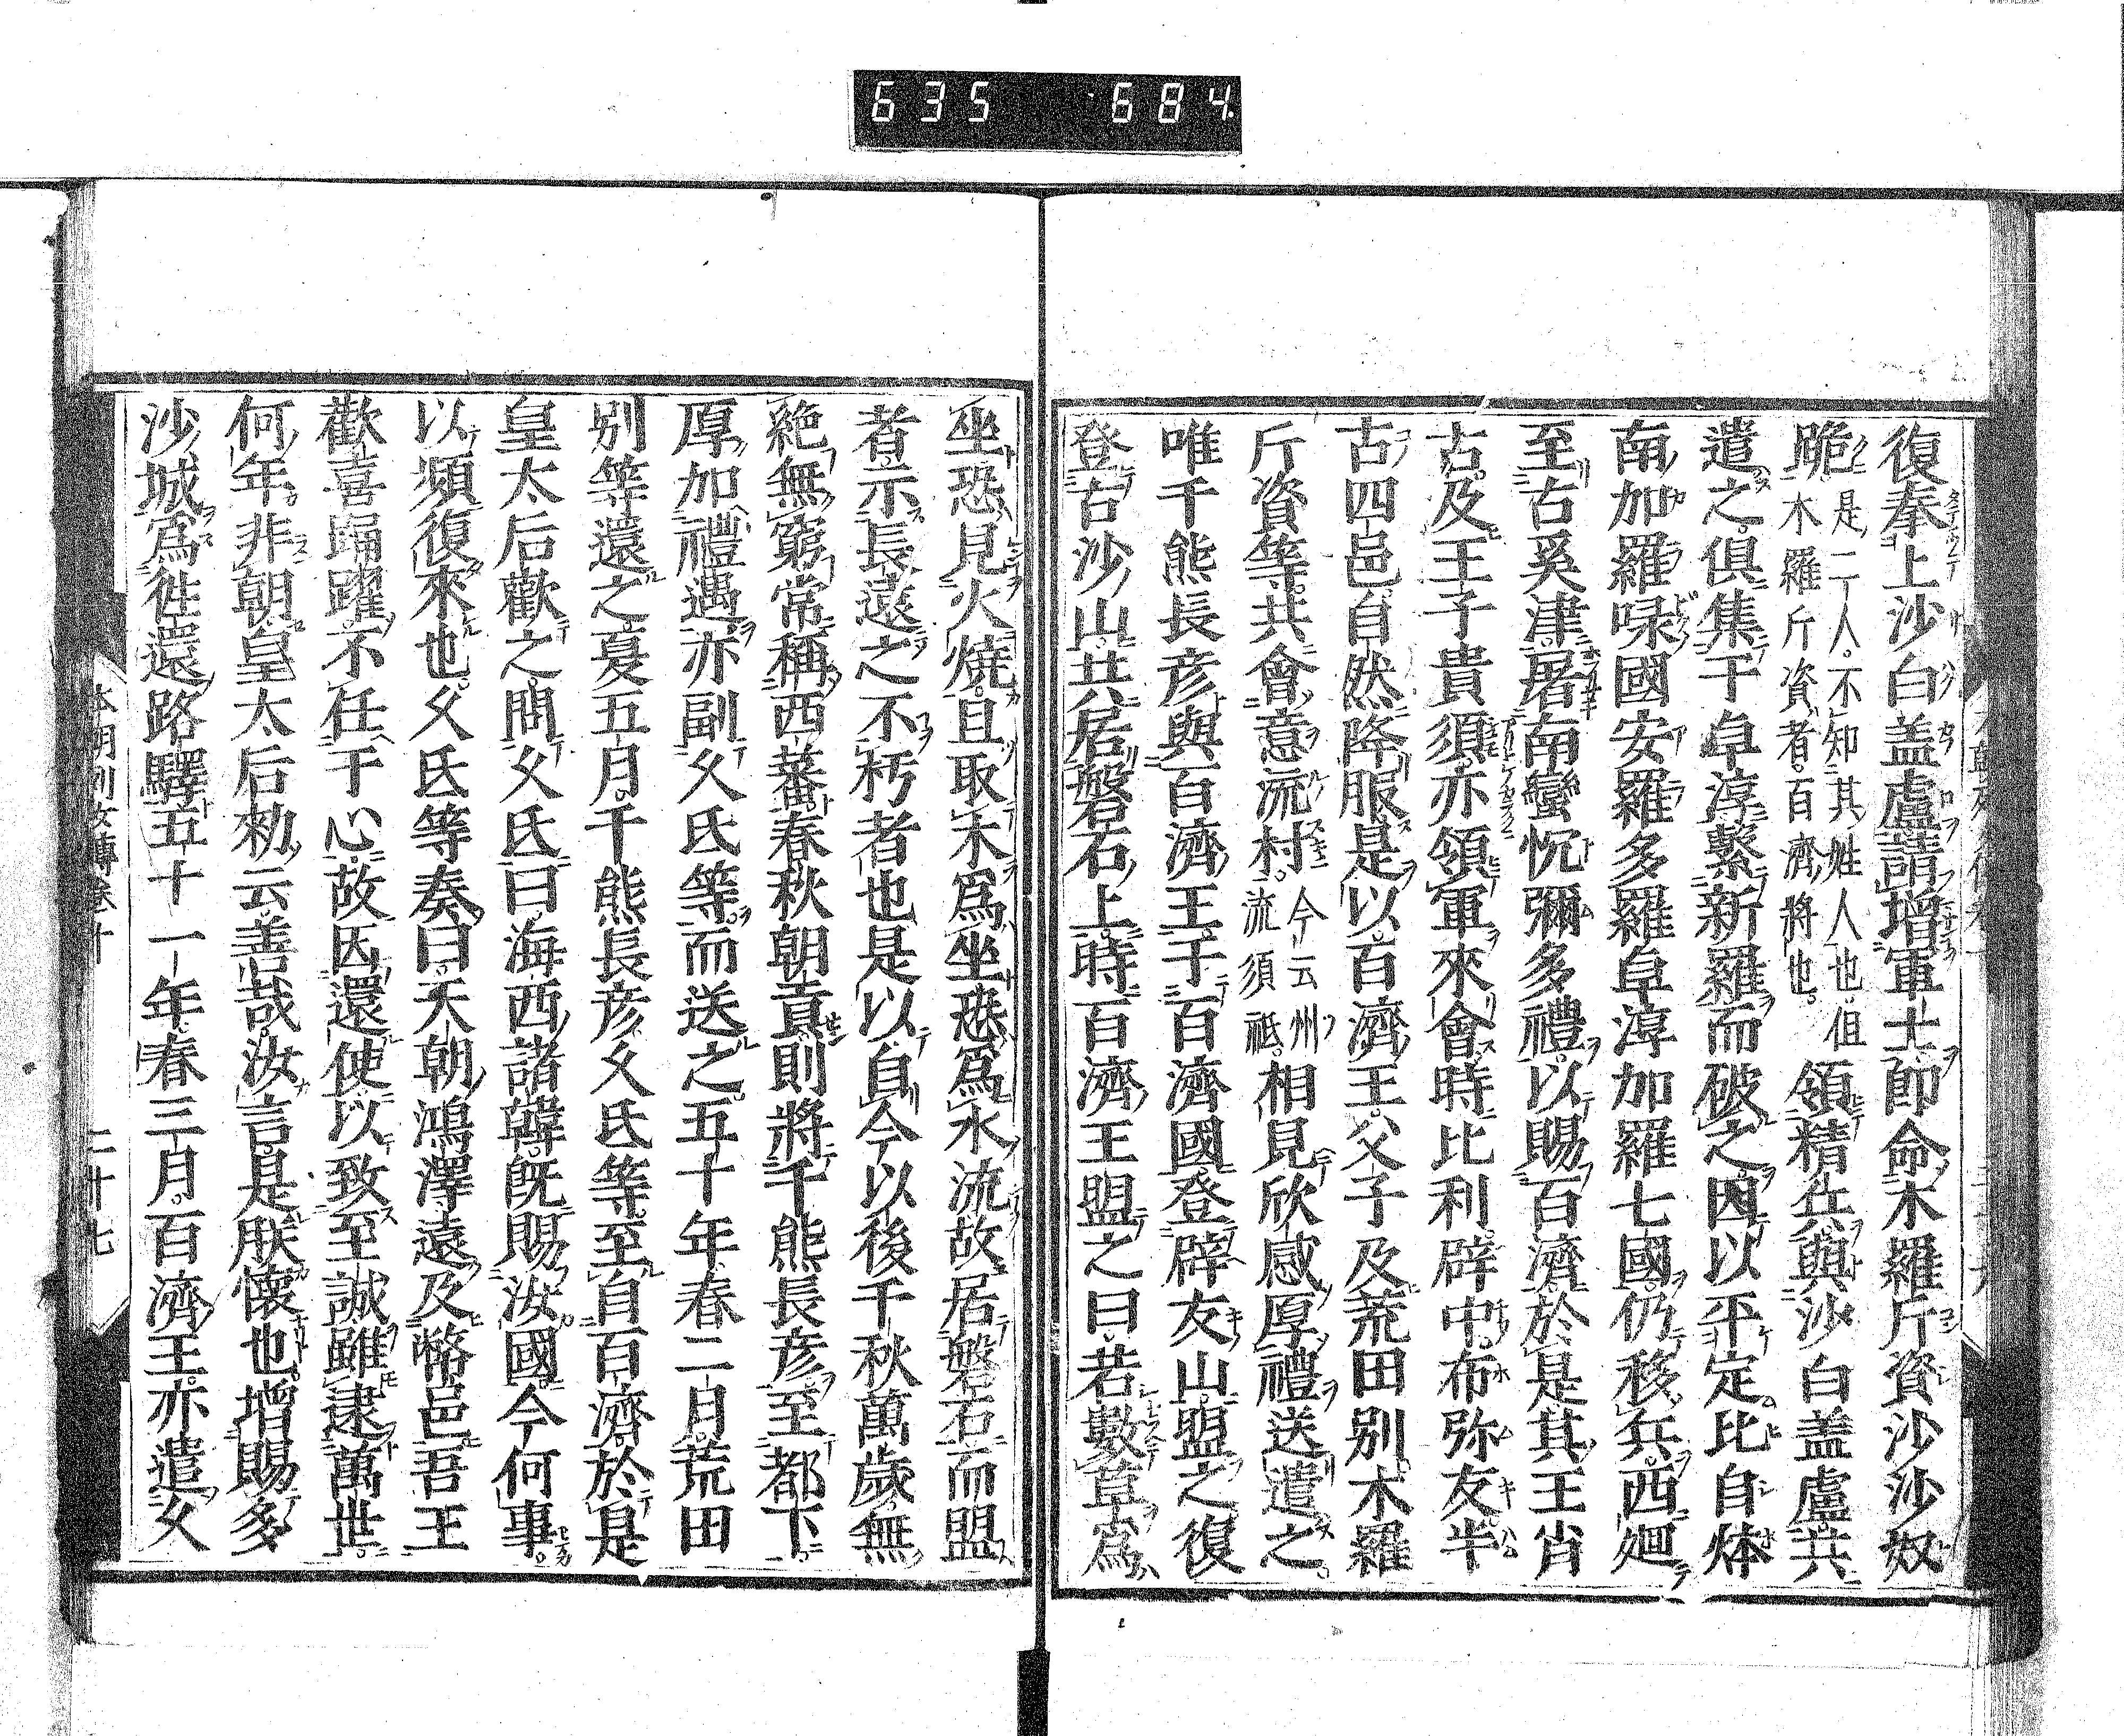 635 684
復奏上沙白盖盧請增軍士即命木羅斤資沙沙奴
跪是二人不知其姓人也但木羅斤資者百濟將也領精兵與沙白盖盧共
遣之俱集于卓淳繫新羅而破之因以平定比自㶱
南加羅㖨國安羅多羅卓淳加羅七國仍移兵西廻
至古奚津屠南蠻忱彌多禮以賜百濟於是其王肖
古及王子貴須亦領軍來會時比利辟中布弥友半
古四邑自然降服是以百濟王父子及荒田別木羅
斤資等共會意流村今云州流須祗相見欣感厚禮送遣之
唯千熊長彦與百濟王于百濟國登辟友山盟之復
登古沙山共居磐石上時百濟王盟之曰若數草為
坐恐見火燒且取木為坐恐為水流故居磐石而盟
者示長遠之不朽者也是以自今以後千秋萬歲無
絶無窮常稱西蕃春秋朝貢則將千熊長彦至都下
厚加禮遇亦副久氐等而送之五十年春二月荒田
別等還之夏五月千熊長彦久氐等至自百濟於是
皇太后歡之問久氐曰海西諸韓既賜汝國今何事
以頻復來也久氐等奏曰天朝鴻澤遠及弊邑吾王
歡喜踊躍不任于心故因還使以致至誠雖逮萬世
何年非朝皇太后勑云善哉汝言是朕懷也增賜多
沙城為徃還路驛五十一年春三月百濟王亦遣久
本朝列女傳卷十 二十七